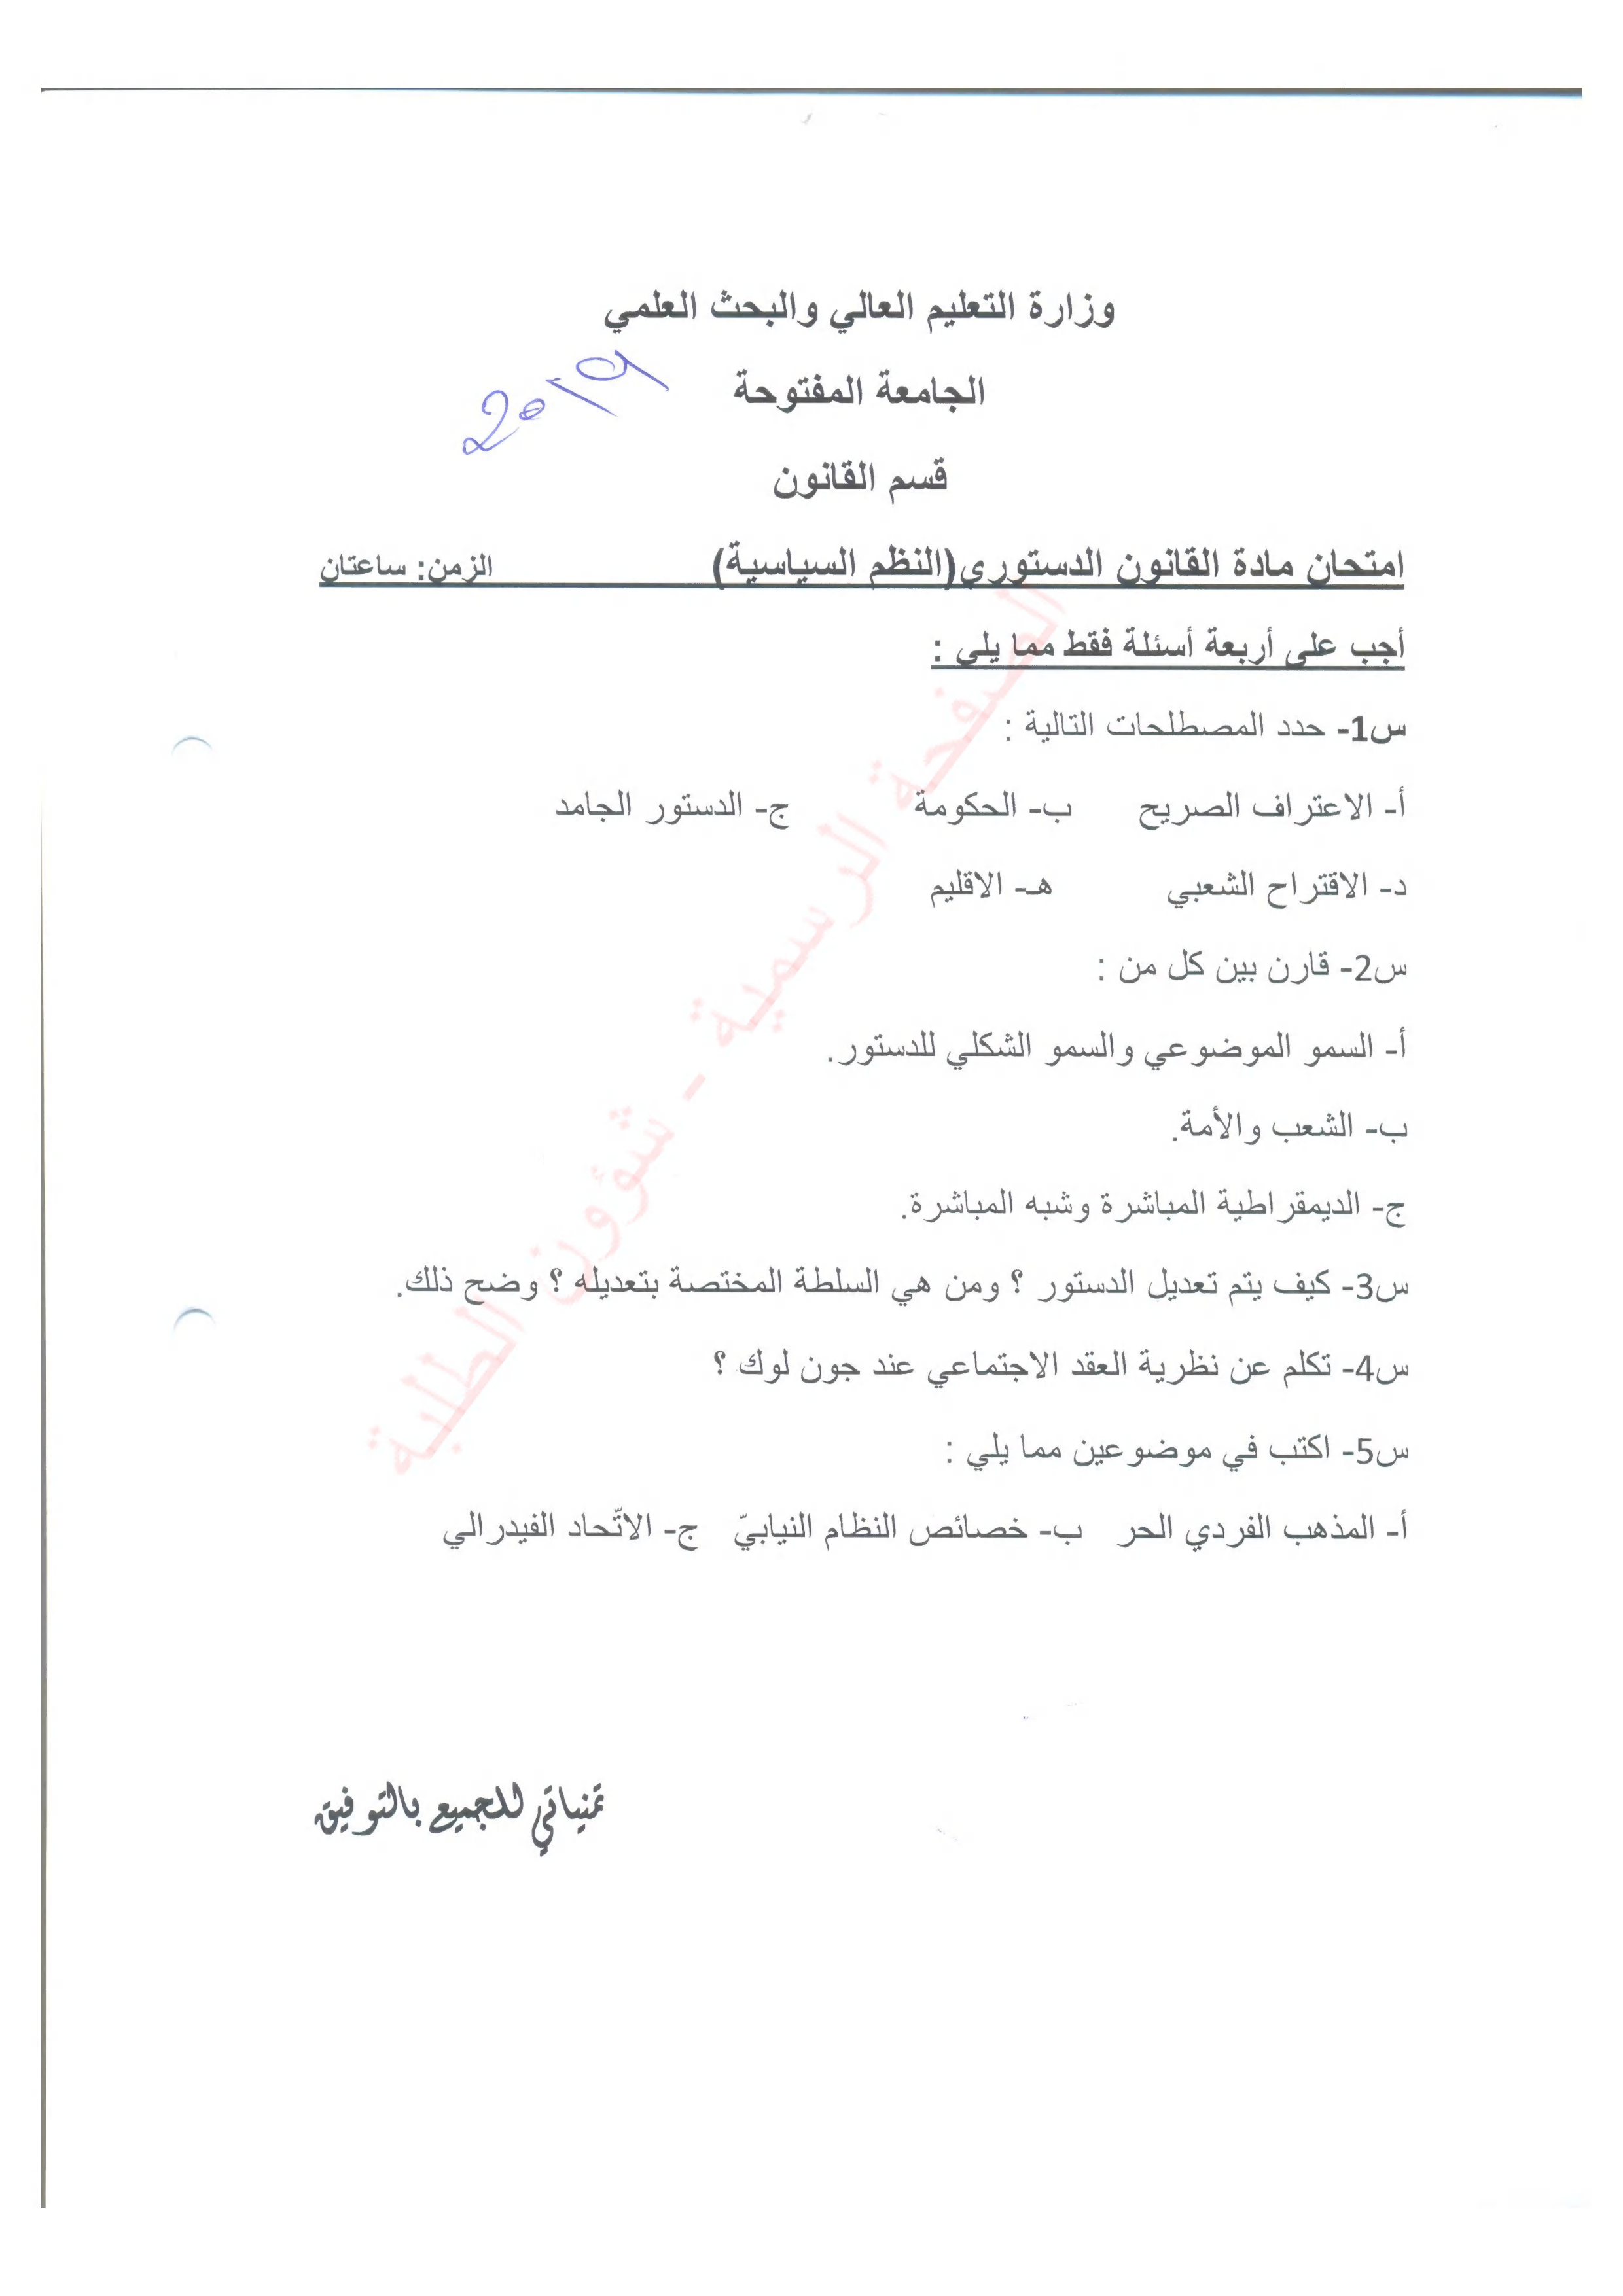 وزارة التعليم العالي والبحث العلمي
الجامعة المفتوحة
2019
قسم القانون
امتحان مادة القانون الدستوري(النظم السياسية) الزمن: ساعتان
أجب على أربعة أسئلة فقط مما يلي :
س1- حدد المصطلحات التالية :
أ- الاعتراف الصريح ب- الحكومة ج- الدستور الجامد
د- الاقتراح الشعبي هـ- الاقليم
س2- قارن بين كل من :
أ- السمو الموضوعي والسمو الشكلي للدستور.
ب- الشعب والأمة.
ج- الديمقراطية المباشرة وشبه المباشرة.
س3- كيف يتم تعديل الدستور ؟ ومن هي السلطة المختصة بتعديله ؟ وضح ذلك.
س4- تكلم عن نظرية العقد الاجتماعي عند جون لوك ؟
س5- اكتب في موضوعين مما يلي :
أ- المذهب الفردي الحر ب- خصائص النظام النيابيّ ج- الاتّحاد الفيدرالي
تمنياتي للجميع بالتوفيق
الصفحة الرسمية - شؤون الطلبة